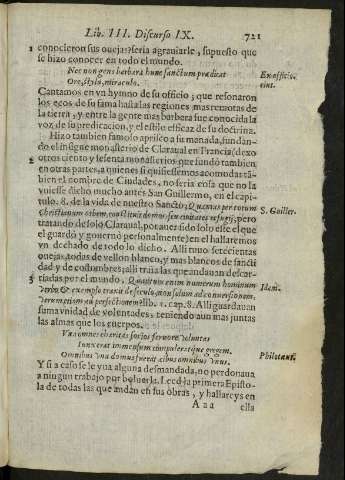 Lib. III. Discurso IX. 721
conocieron sus ouejas? seria agrauiarle, supuesto que
se hizo conocer en todo el mundo.
Nec non gens barbara hunc sanctum prædicat
Ore, stylo, miraculo.
Ex officio.
eius.
Cantamos en vn hymno de su officio; que resonaron
los ecos de su fama hasta las regiones mas remotas de
la tierra; y entre la gente mas barbara fue conocida la
voz de su predicacion, y el estilo efficaz de su doctrina.
Hizo tambien famoso aprisco a su manada, fundan-
do el insigne monasterio de Claraual en Francia (dexo
otros ciento y sesenta monasterios que fundò tambien
en otras partes, a quienes si quisiessemos acomodar tã-
bien el nombre de Ciudades, no seria cosa que no la
vuiesse dicho mucho antes San Guillermo, en el capi-
tulo. 8. de la vida de nuestro Sancto;
Christianum orbem, constituit domos, seu ciuitates refugij, pero
S. Guiller.
tratando de solo Claraual, por auer sido solo esse el que
el guardò y gouernò personalmente) en el hallaremos
vn dechado de todo lo dicho. Alli tuuo setecientas
ouejas, todas de vellon blanco, y mas blancos de sancti
dad y de costumbres; alli traia las que andauan descar-
riadas por el mundo, Quantum enim numerum hominum
Idem.
verbo & exemplo traxit de seculo, non solum ad conuersionem,
verum etiam ad perfectionem: lib. 1. cap. 8. Alli guardauan
suma vnidad de voluntades, teniendo aun mas juntas
las almas que los cuerpos.
Vna omnes charitas socios feruore voluntas
Iunxerat immensum cumulerat que gregem.
Omnibus vna domus fuerat cibus omnibus vnus.
Philotauf.
Y si a caso se le yua alguna desmandada, no perdonaua
a ningun trabajo por boluerla. Leed la primera Episto-
la de todas las que andan en sus obras, y hallareys en
A a a ella